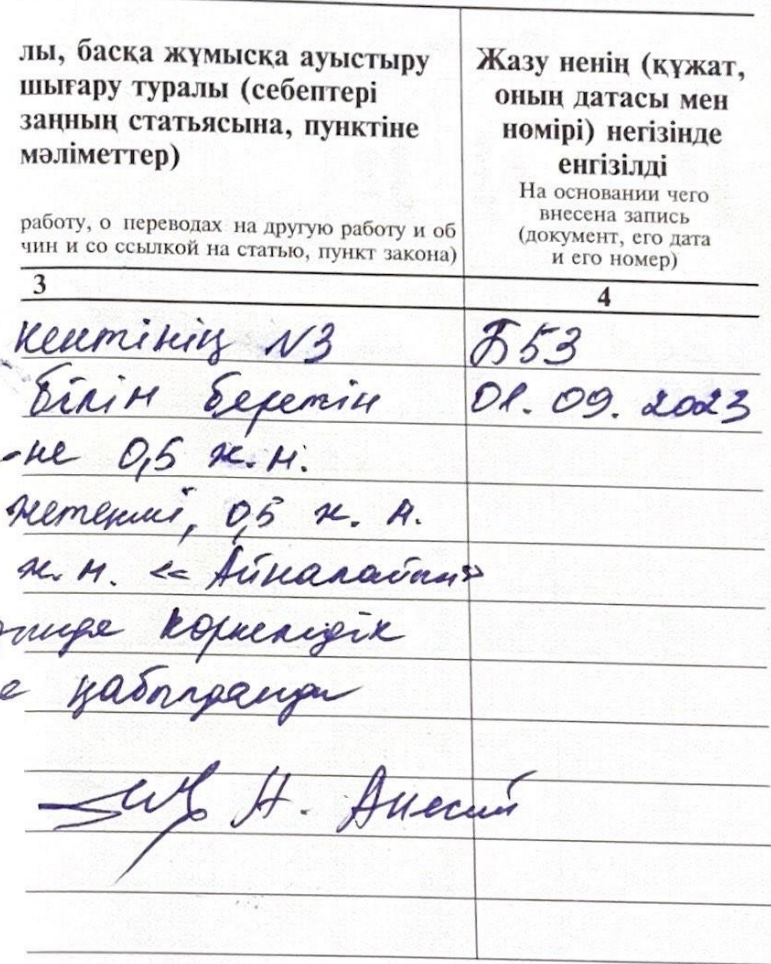 лы, басқа жұмысқа ауыстыру
шығару туралы (себептері
заңның статьясына, пунктіне
мәліметтер)
работу, о переводах на другую работу и об
чин и со ссылкой на статью, пункт закона)
Жазу ненің (құжат,
оның датасы мен
нөмірі) негізінде
енгізілді
На основании чего
внесена запись
(документ, его дата
и его номер)
3
4
кентінің N3
Б53
білім беретін
01. 09. 2023
-не 0,5 ж.м.
жетекші, 0,5 ж. м.
ж.м. «Айналайын»
көрнекілік
е қабылданды
Н.